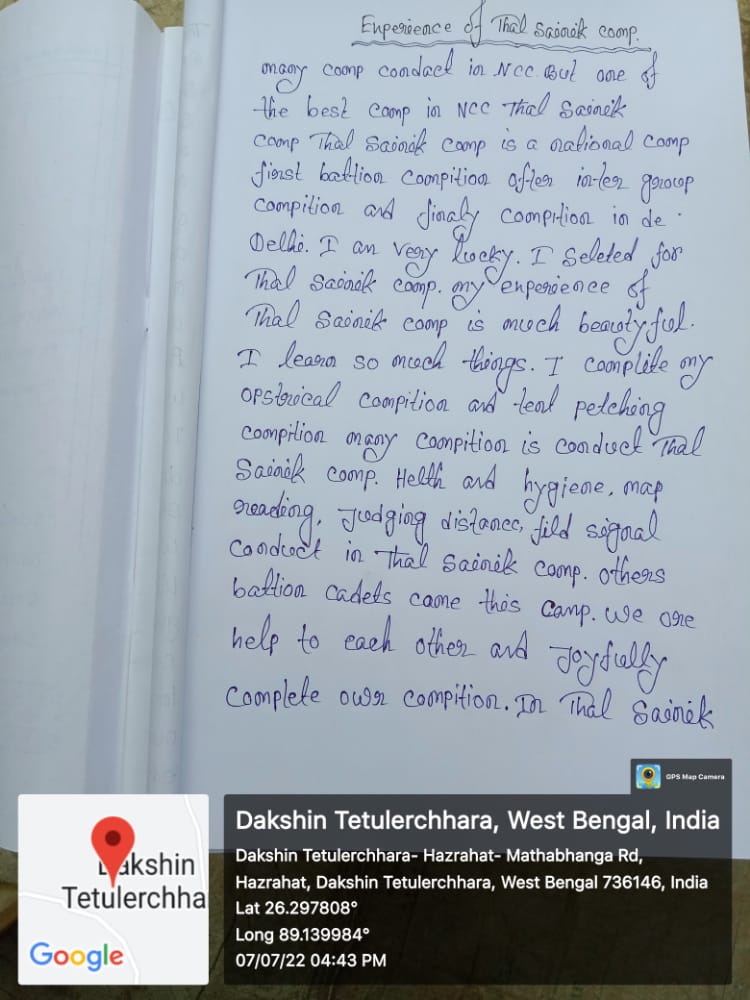 Experience of Thal Sainik comp.
many comp condact in NCC. But one of
the best comp in NCC Thal Sainik
comp Thal Sainik comp is a national comp
first battion compition after inter group
compition and finaly compition in de.
Delhi. I an very lucky. I seleted for
Thal Sainik comp. my experience of
Thal Sainik comp is much beautyful.
I learn so much things. I complite my
opstrical compition and tent petching
compition many compition is conduct Thal
Sainik comp. Helth and hygiene, map
reading, Judging distance, fild signal
conduct in Thal Sainik comp. others
battion cadets come this camp. we are
help to each other and Joyfully
complete owr compition. In Thal Sainik
GPS Map Camera
Dakshin Tetulerchhara, West Bengal, India
Dakshin Tetulerchhara- Hazrahat- Mathabhanga Rd,
Hazrahat, Dakshin Tetulerchhara, West Bengal 736146, India
Lat 26.297808°
Long 89.139984°
07/07/22 04:43 PM
Dakshin
Tetulerchha
Google